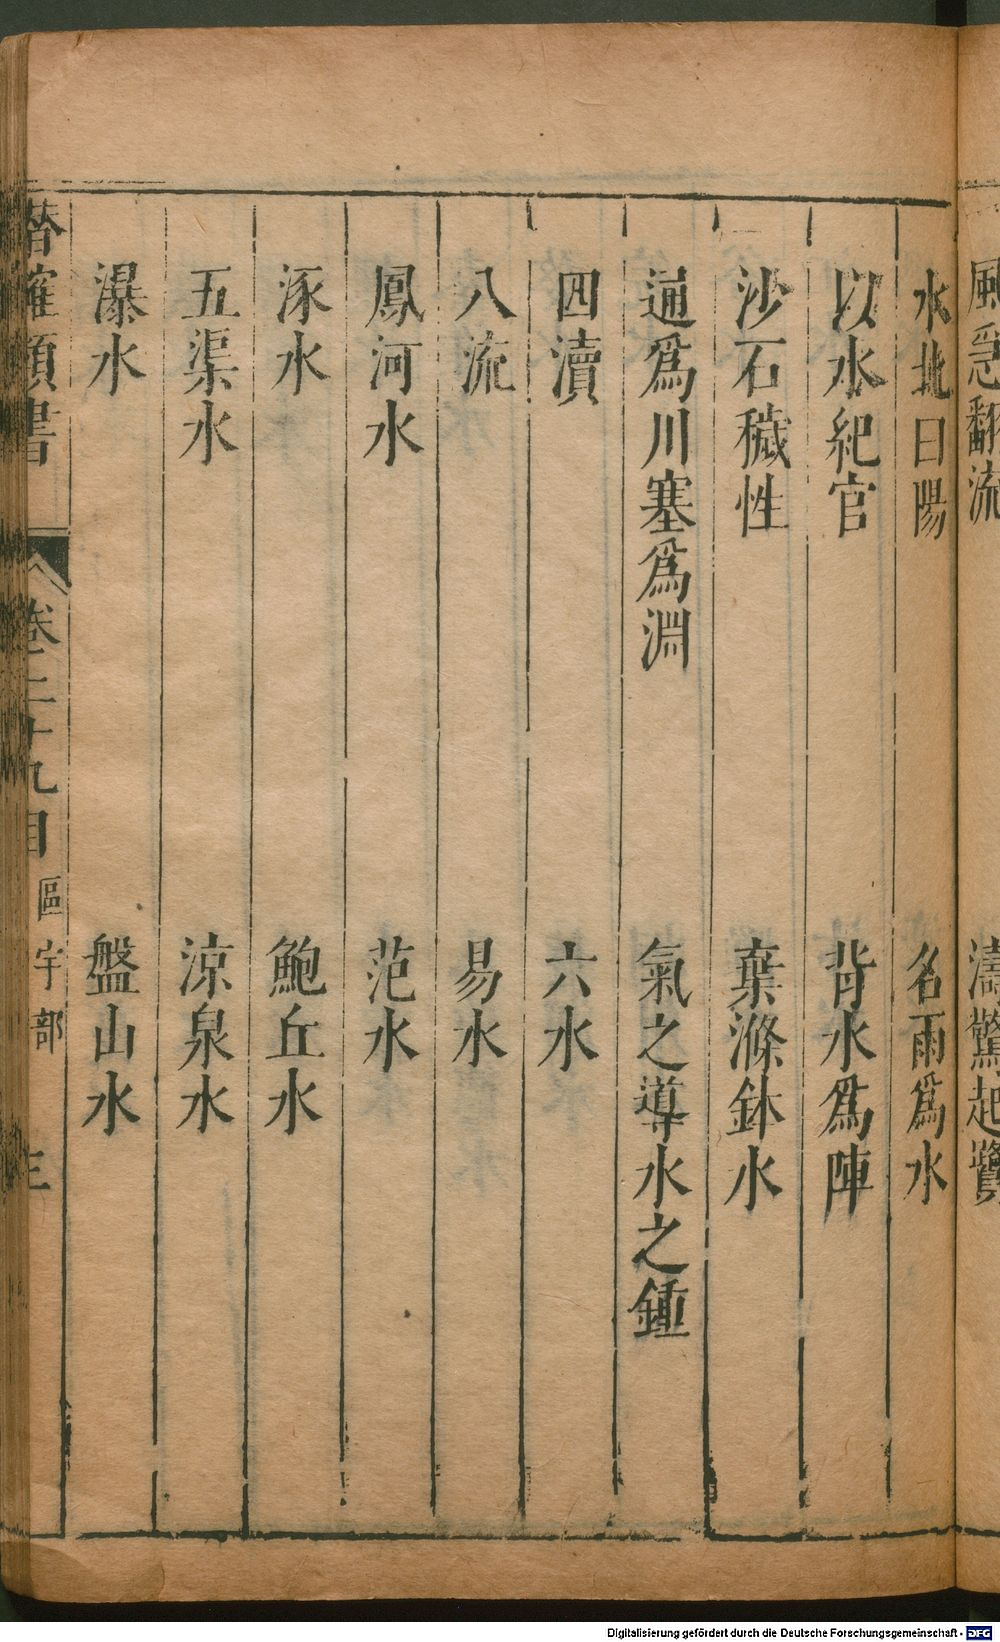 風急翻流 濤驚起鷺
水北曰陽 名雨爲水
以水紀官 背水爲陣
沙石穢性 棄滌鉢水
通爲川塞爲淵 氣之導水之鍾
四瀆 六水
八流 易水
鳳河水 范水
涿水 鮑丘水
五渠水 涼泉水
瀑水 盤山水
潛確類書 卷二十九目 區宇部 三
Digitalisierung gefördert durch die Deutsche Forschungsgemeinschaft - DFG